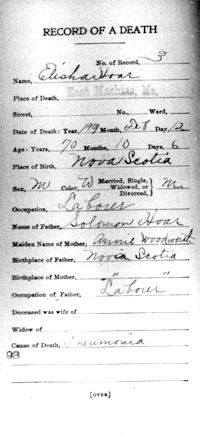 RECORD OF A DEATH
No. of Record, 3
Name, Elisha Hoar
Place of Death, East Machias, Me.
Street, No. Ward,
Date of Death: Year, 199 Month, Feb Day, 12
Age: Years, 70 Months, 10 Days, 6
Place of Birth, Nova Scotia
Sex, M Color, W Married, Single, Widowed, or Divorced, M.
Occupation, Laborer
Name of Father, Solomon Hoar
Maiden Name of Mother, Annie Woodworth
Birthplace of Father, Nova Scotia
Birthplace of Mother, " "
Occupation of Father, Laborer
Deceased was wife of
Widow of
Cause of Death, Pneumonia
93
[OVER]